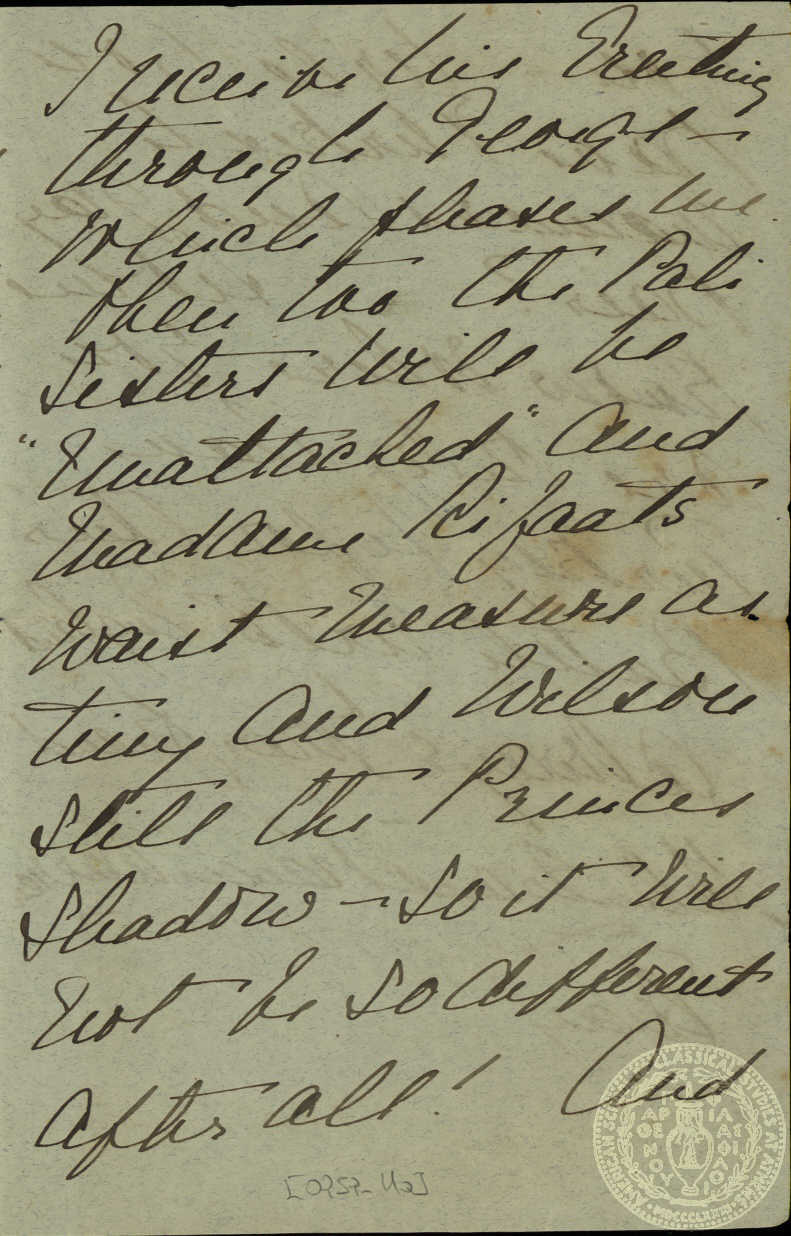 I receive his Greeting
through George —
which pleases me.
then too the Pali
Sisters will be
"Unattached" and
Madame Rifaats
waist measure as
tiny and Wilson
still the Princes
Shadow — so it will
not be so different
after all! And
AMERICAN SCHOOL CLASSICAL STUDIES AT ATHENS
MDCCCLXXXI